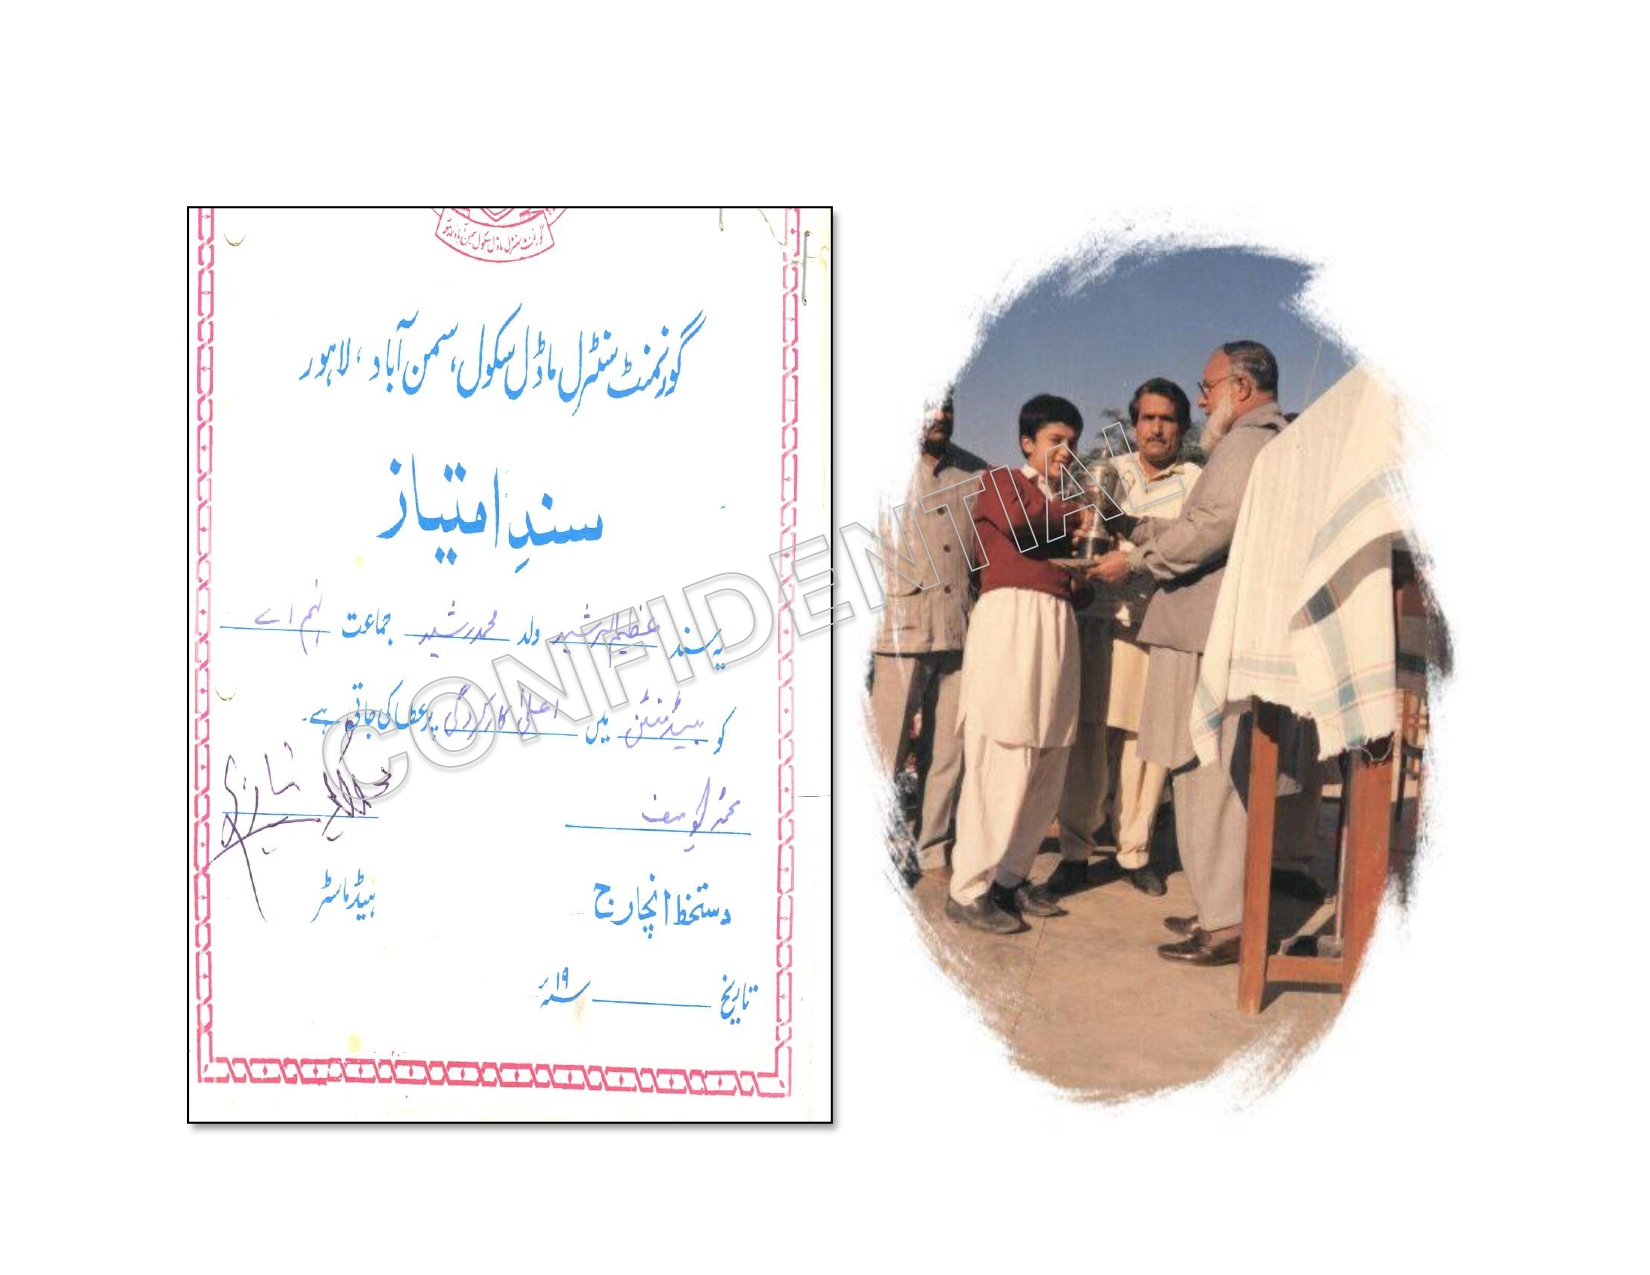 گورنمنٹ سنٹرل ماڈل سکول سمن آباد لاہور
گورنمنٹ سنٹرل ماڈل سکول، سمن آباد، لاہور
سندِ امتیاز
یہ سند عظیم الرشید ولد محمد رشید جماعت نہم اے
کو بیڈمنٹن میں اعلیٰ کارکردگی پر عطا کی جاتی ہے۔
محمد یوسف
دستخط انچارج ہیڈ ماسٹر
تاریخ ۱۹ء
CONFIDENTIAL